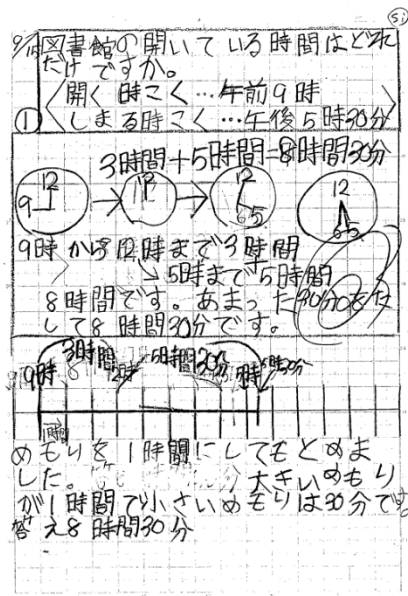 図書館の開いている時間はどれ
だけですか。
開く時こく…午前9時
① しまる時こく…午後5時30分
3時間+5時間=8時間30分
12 9
12
12 6 5
12 6 5
9時から12時まで3時間
5時まで5時間
8時間です。あまった30分をた
して8時間30分です。
3時間 5時間30分
9時 12時 5時 5時30分
1時間
めもりを1時間にしてもとめま
した。 大きいめもり
が1時間で小さいめもりは30分です。
答え8時間30分